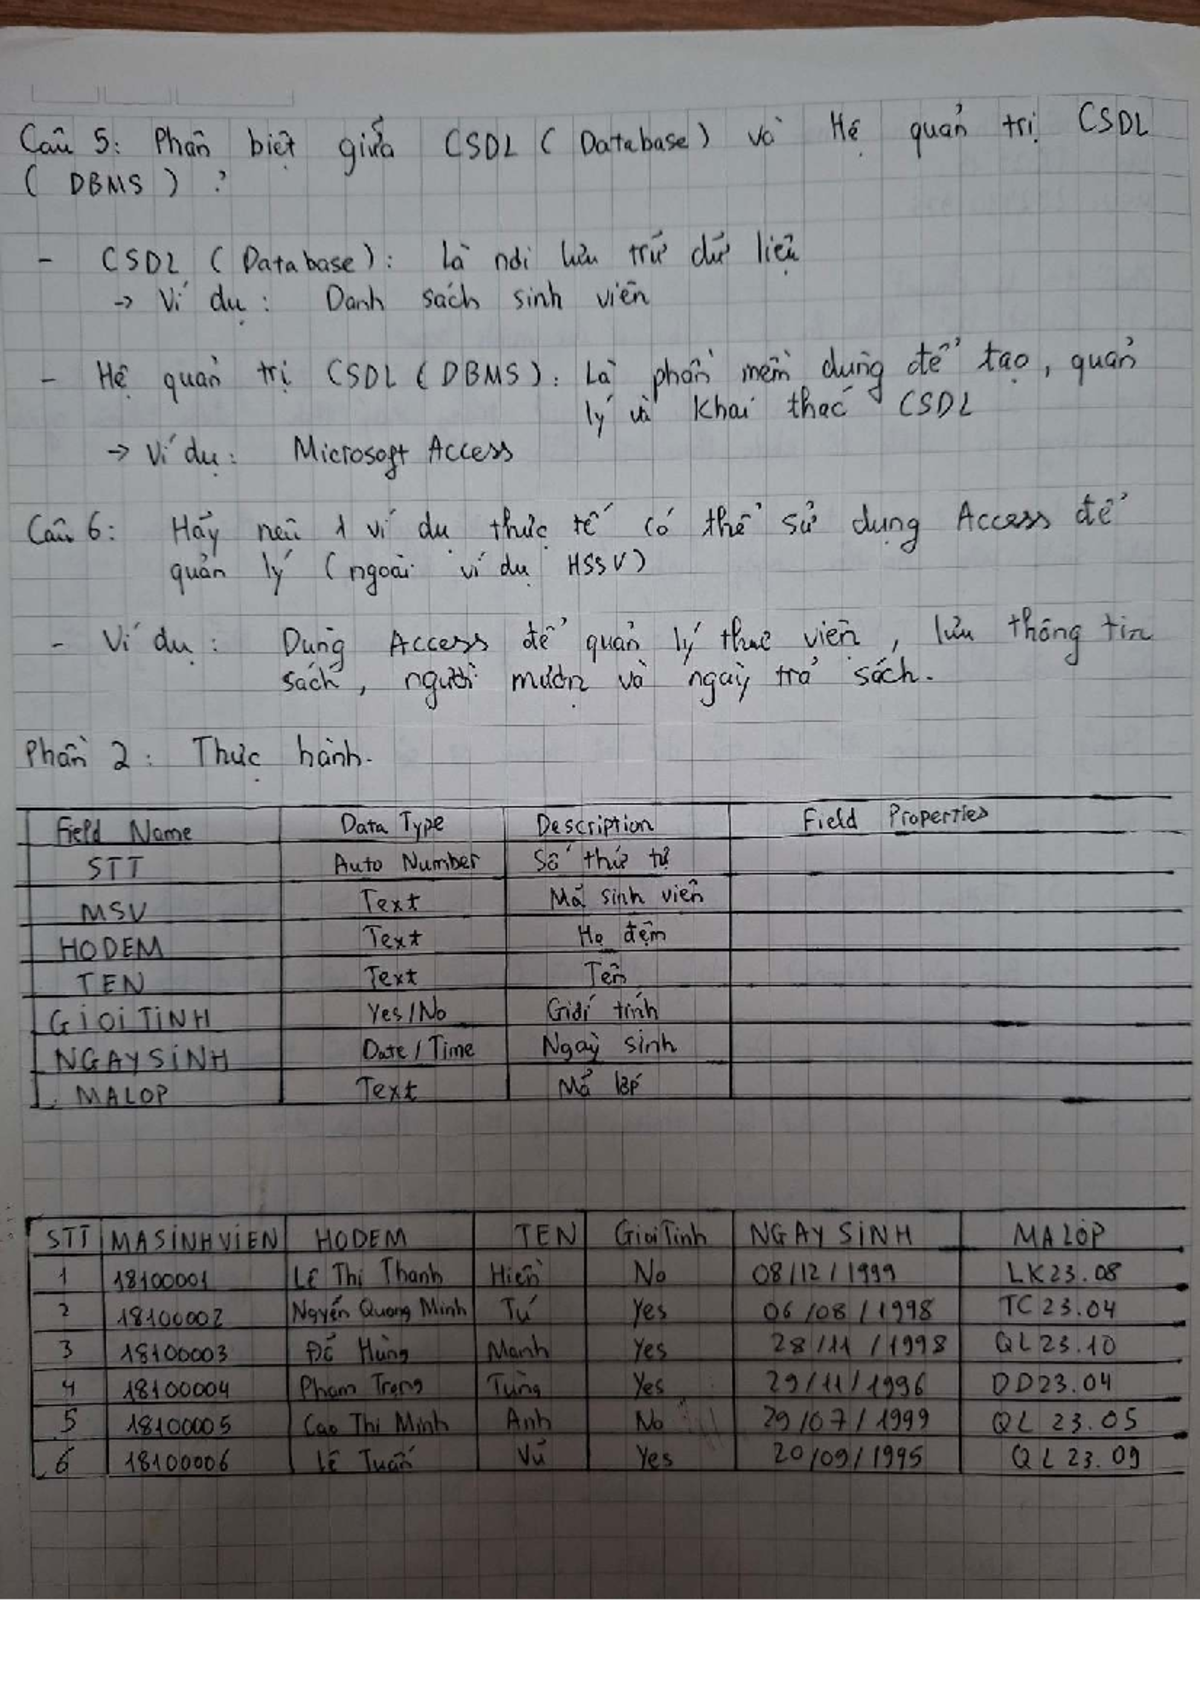 Câu 5: Phân biệt giữa CSDL ( Database ) và Hệ quản trị CSDL
( DBMS ) ?
- CSDL ( Database ): Là nơi lưu trữ dữ liệu
→ Ví dụ : Danh sách sinh viên
- Hệ quản trị CSDL ( DBMS ): Là phần mềm dùng để tạo, quản
lý và khai thác CSDL
→ Ví dụ : Microsoft Access
Câu 6: Hãy nêu 1 ví dụ thực tế có thể sử dụng Access để
quản lý ( ngoài ví dụ HSSV )
- Ví dụ : Dùng Access để quản lý thư viện , lưu thông tin
sách , người mượn và ngày trả sách.
Phần 2 : Thực hành.
Field Name Data Type Description Field Properties
STT Auto Number Số thứ tự
MSV Text Mã sinh viên
HODEM Text Họ đệm
TEN Text Tên
GiOiTiNH Yes/No Giới tính
NGAYSiNH Date / Time Ngày sinh
MALOP Text Mã lớp
STT MASiNHViEN HODEM TEN GioiTinh NGAY SiNH MALOP
1 18100001 Lê Thị Thanh Hiền No 08/12/1999 LK23.08
2 18100002 Nguyễn Quang Minh Tú Yes 06/08/1998 TC23.04
3 18100003 Đỗ Hùng Mạnh Yes 28/11/1998 QL23.10
4 18100004 Phạm Trọng Tùng Yes 29/11/1996 DD23.04
5 18100005 Cao Thị Minh Anh No 29/07/1999 QL 23.05
6 18100006 Lê Tuấn Vũ Yes 20/09/1995 QL23.09